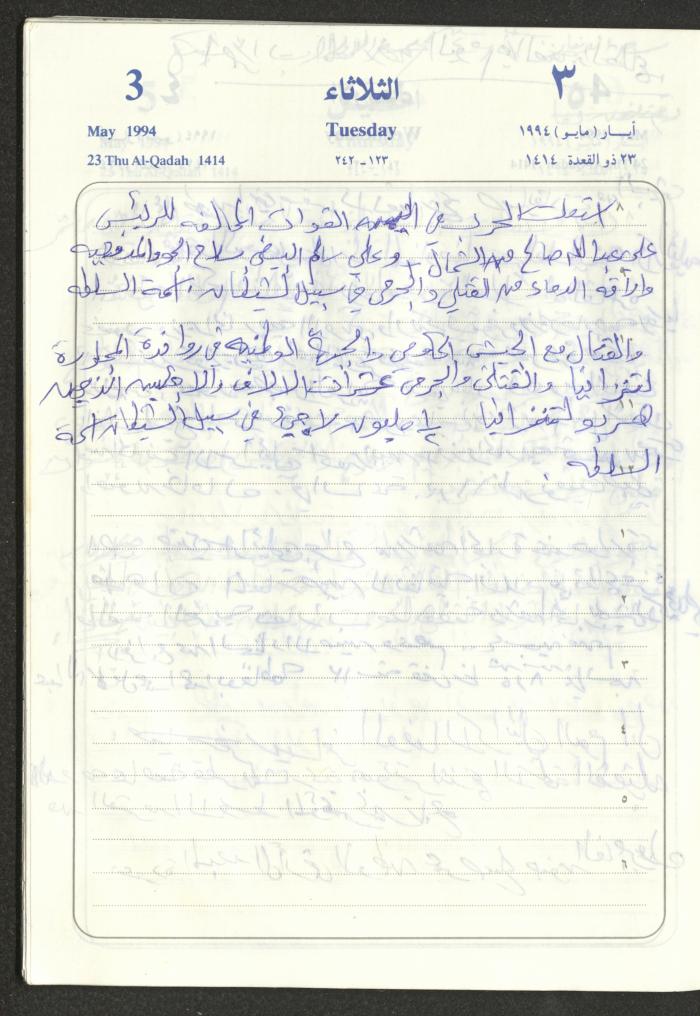 3 الثلاثاء ٣
May 1994 Tuesday أيـــار (مايو) ١٩٩٤
23 Thu Al-Qadah 1414 ١٢٣ــ٢٤٢ ٢٣ ذو القعدة ١٤١٤
٨ اشتعلت الحرب في اليمن القوات المخالفه للرئيس
علي عبدالله صالح من الشمال وعلي سالم البيض سلاح الجو والمدفعيه
واراقة الدماء من القتلى والجرحى في سبيل الشيطان اسمة السلطه
والقتال مع الجيش الحكومي والجبهة الوطنيه في رواندة المجاورة
لتنزانيا والقتلى والجرحى عشرات الالاف والاجئين الذين
هربو لتنزانيا ½ مليون لاجئ في سبيل الشيطان اسمة
السلطه
١
٢
٣
٤
٥
٦